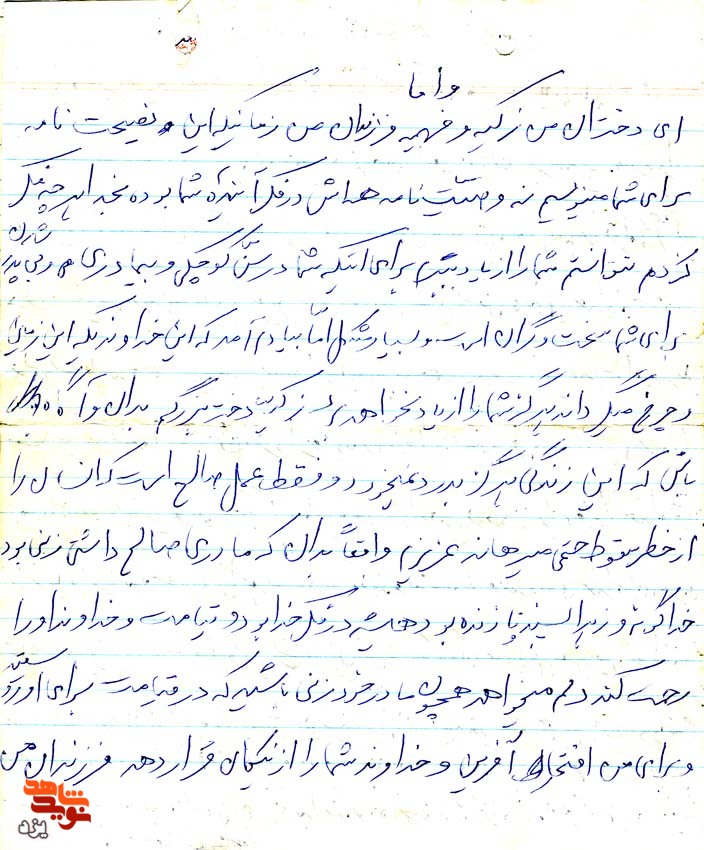 و اما
ای دختران من زکیه و فهیمه فرزندان من زمانیکه این نصیحت نامه
برای شما مینویسم نه وصیت نامه همه اش در فکر آینده شما بوده بخدا هر چه فکر
کردم نتوانستم شما را از یاد ببرم برای اینکه شما در سن کوچکی و بی مادری و بی پدر شدن
برای شما سخت و گران است و بسیار مشکل اما بیادم آمد که این خداوندیکه این زمین
و چرخ میگرداند هرگز شما را از یاد نخواهد برد زکیه دختر بزرگم بدان و آگاه
باش که این زندگی هرگز بدرد نمیخورد و فقط عمل صالح است که انسان را
از خطر سقوط حتمی میرهاند عزیزم واقعاً بدان که مادری صالح داشتی زنی بود
خداگونه و زهرا پسند تا زنده بود همیشه در فکر خدا بود و قیامت و خداوند او را
رحمت کند دلم میخواهد همچون مادر خود زنی باشید که در قیامت برای او رو سفید
و برای من افتخار آفرین و خداوند شما را از نیکان قرار دهد فرزندان من
نوید شاهد
یزد